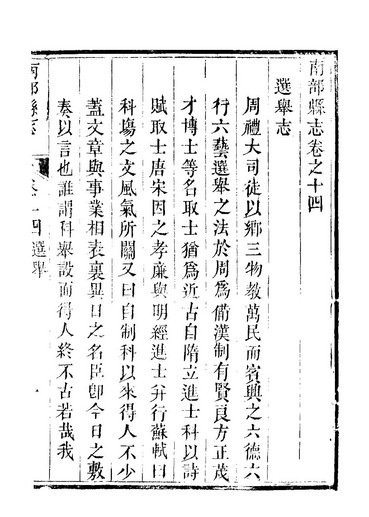 南部縣志卷之十四
選舉志
周禮大司徒以鄉三物教萬民而賓興之六德六
行六藝選舉之法於周爲備漢制有賢良方正茂
才博士等名取士猶爲近古自隋立進士科以詩
賦取士唐宋因之孝廉與明經進士并行蘇軾曰
科塲之文風氣所關又曰自制科以來得人不少
蓋文章與事業相表裏異日之名臣卽今日之敷
奏以言也誰謂科舉設而得人終不古若哉我
南部縣志
卷十四選舉